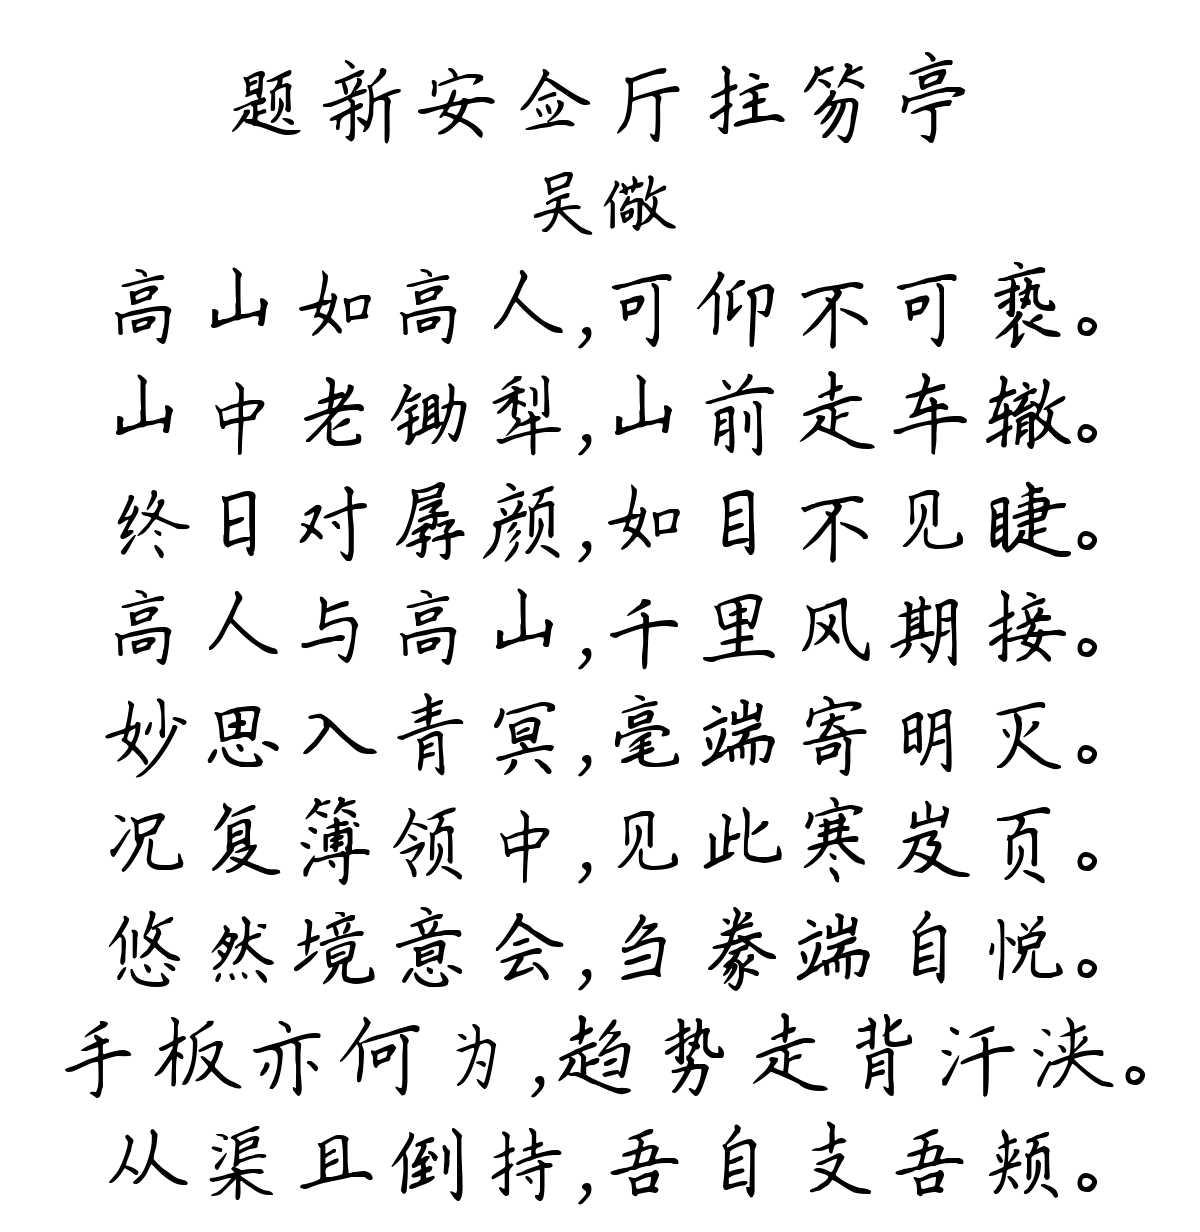 题新安佥厅拄笏亭
吴儆
高山如高人,可仰不可亵。
山中老锄犁,山前走车辙。
终日对孱颜,如目不见睫。
高人与高山,千里风期接。
妙思入青冥,毫端寄明灭。
况复簿领中,见此寒岌页。
悠然境意会,刍豢端自悦。
手板亦何为,趋势走背汗浃。
从渠且倒持,吾自支吾颊。